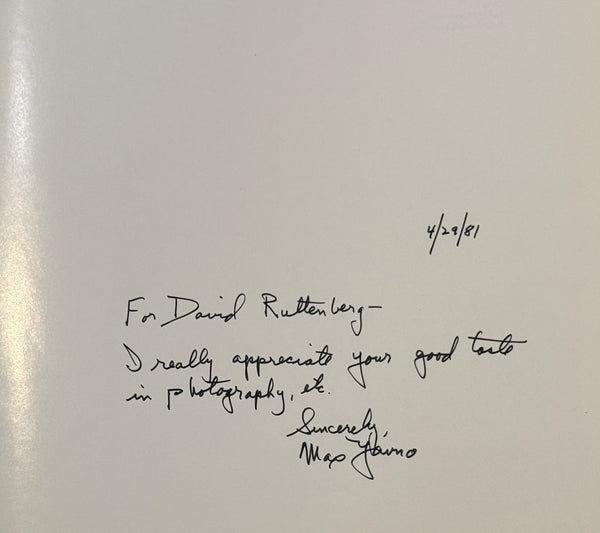 4/29/81
For David Ruttenberg—
I really appreciate your good taste
in photography, etc.
Sincerely,
Max Yavno